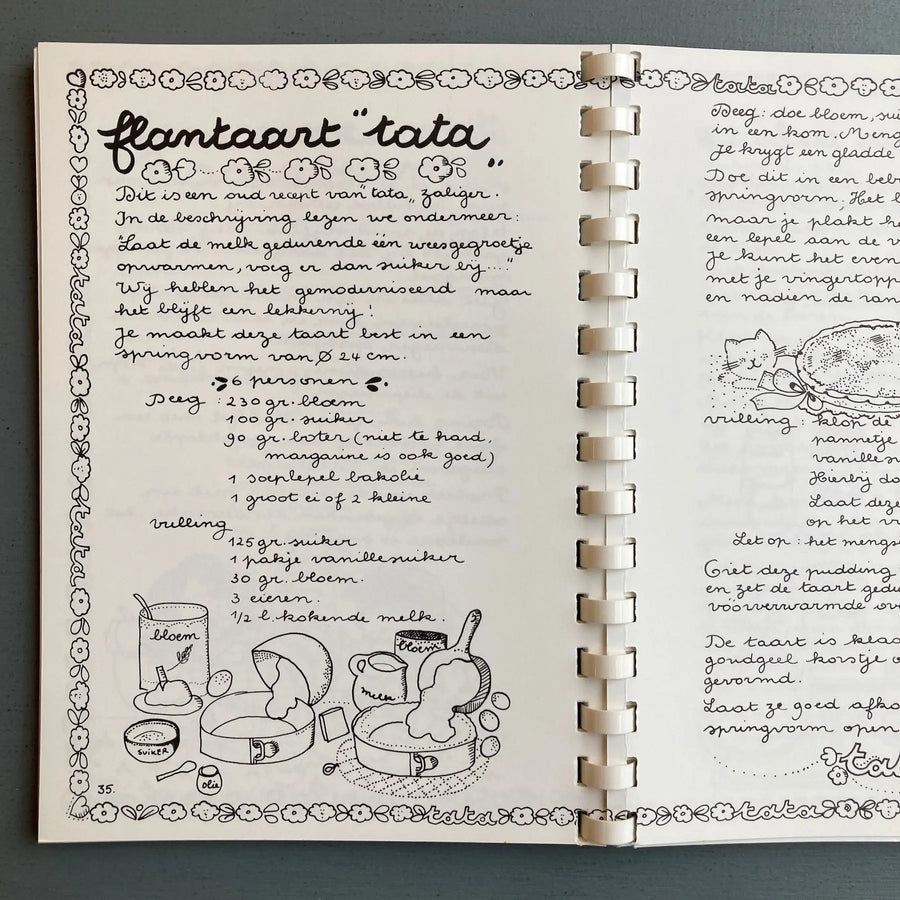 flantaart "tata"
Dit is een oud recept van "tata„ zaliger.
In de beschrijving lezen we ondermeer:
"Laat de melk gedurende één weesgegroetje
opwarmen, voeg er dan suiker bij...."
Wij hebben het gemoderniseerd maar
het blijft een lekkernij!
Je maakt deze taart best in een
springvorm van Ø 24 cm.
6 personen
Deeg : 230 gr. bloem
100 gr. suiker
90 gr. boter (niet te hard,
margarine is ook goed)
1 soeplepel bakolie
1 groot ei of 2 kleine
vulling
125 gr. suiker
1 pakje vanillesuiker
30 gr. bloem.
3 eieren.
1/2 l. kokende melk.
bloem
bloem
melk
suiker
olie
35.
tata
tata
tata
tata
Deeg : doe bloem, sui
in een kom. Meng
Je krijgt een gladde
Doe dit in een beb
springvorm. Het l
maar je plakt he
een lepel aan de v
Je kunt het even
met je vingertopp
en nadien de ran
vulling : klop de
pannetje
vanillesu
Hierbij do
Laat deze
op het vu
Let op : het mengs
Giet deze pudding
en zet de taart gedu
vóórverwarmde ov
De taart is klaa
goudgeel korstje o
gevormd.
Laat ze goed afko
springvorm open
ta
tata